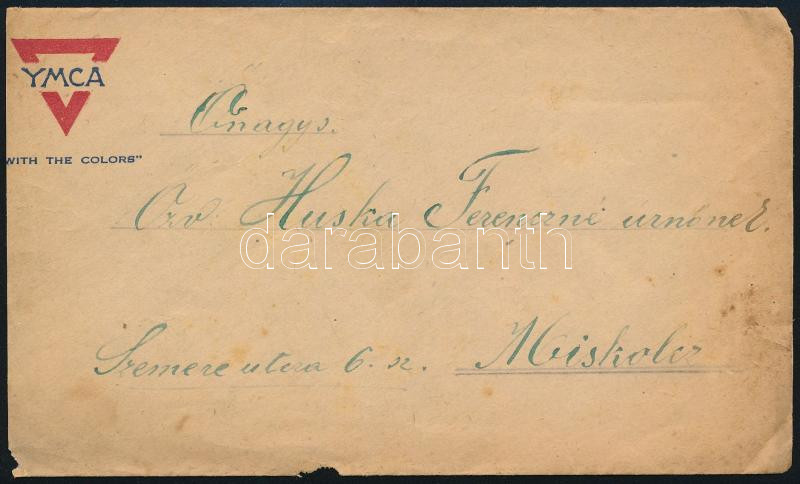 YMCA
WITH THE COLORS"
Őnagys.
Özv. Huska Ferencné úrnőnek.
darabanth
Szemere utcza 6. sz. Miskolcz